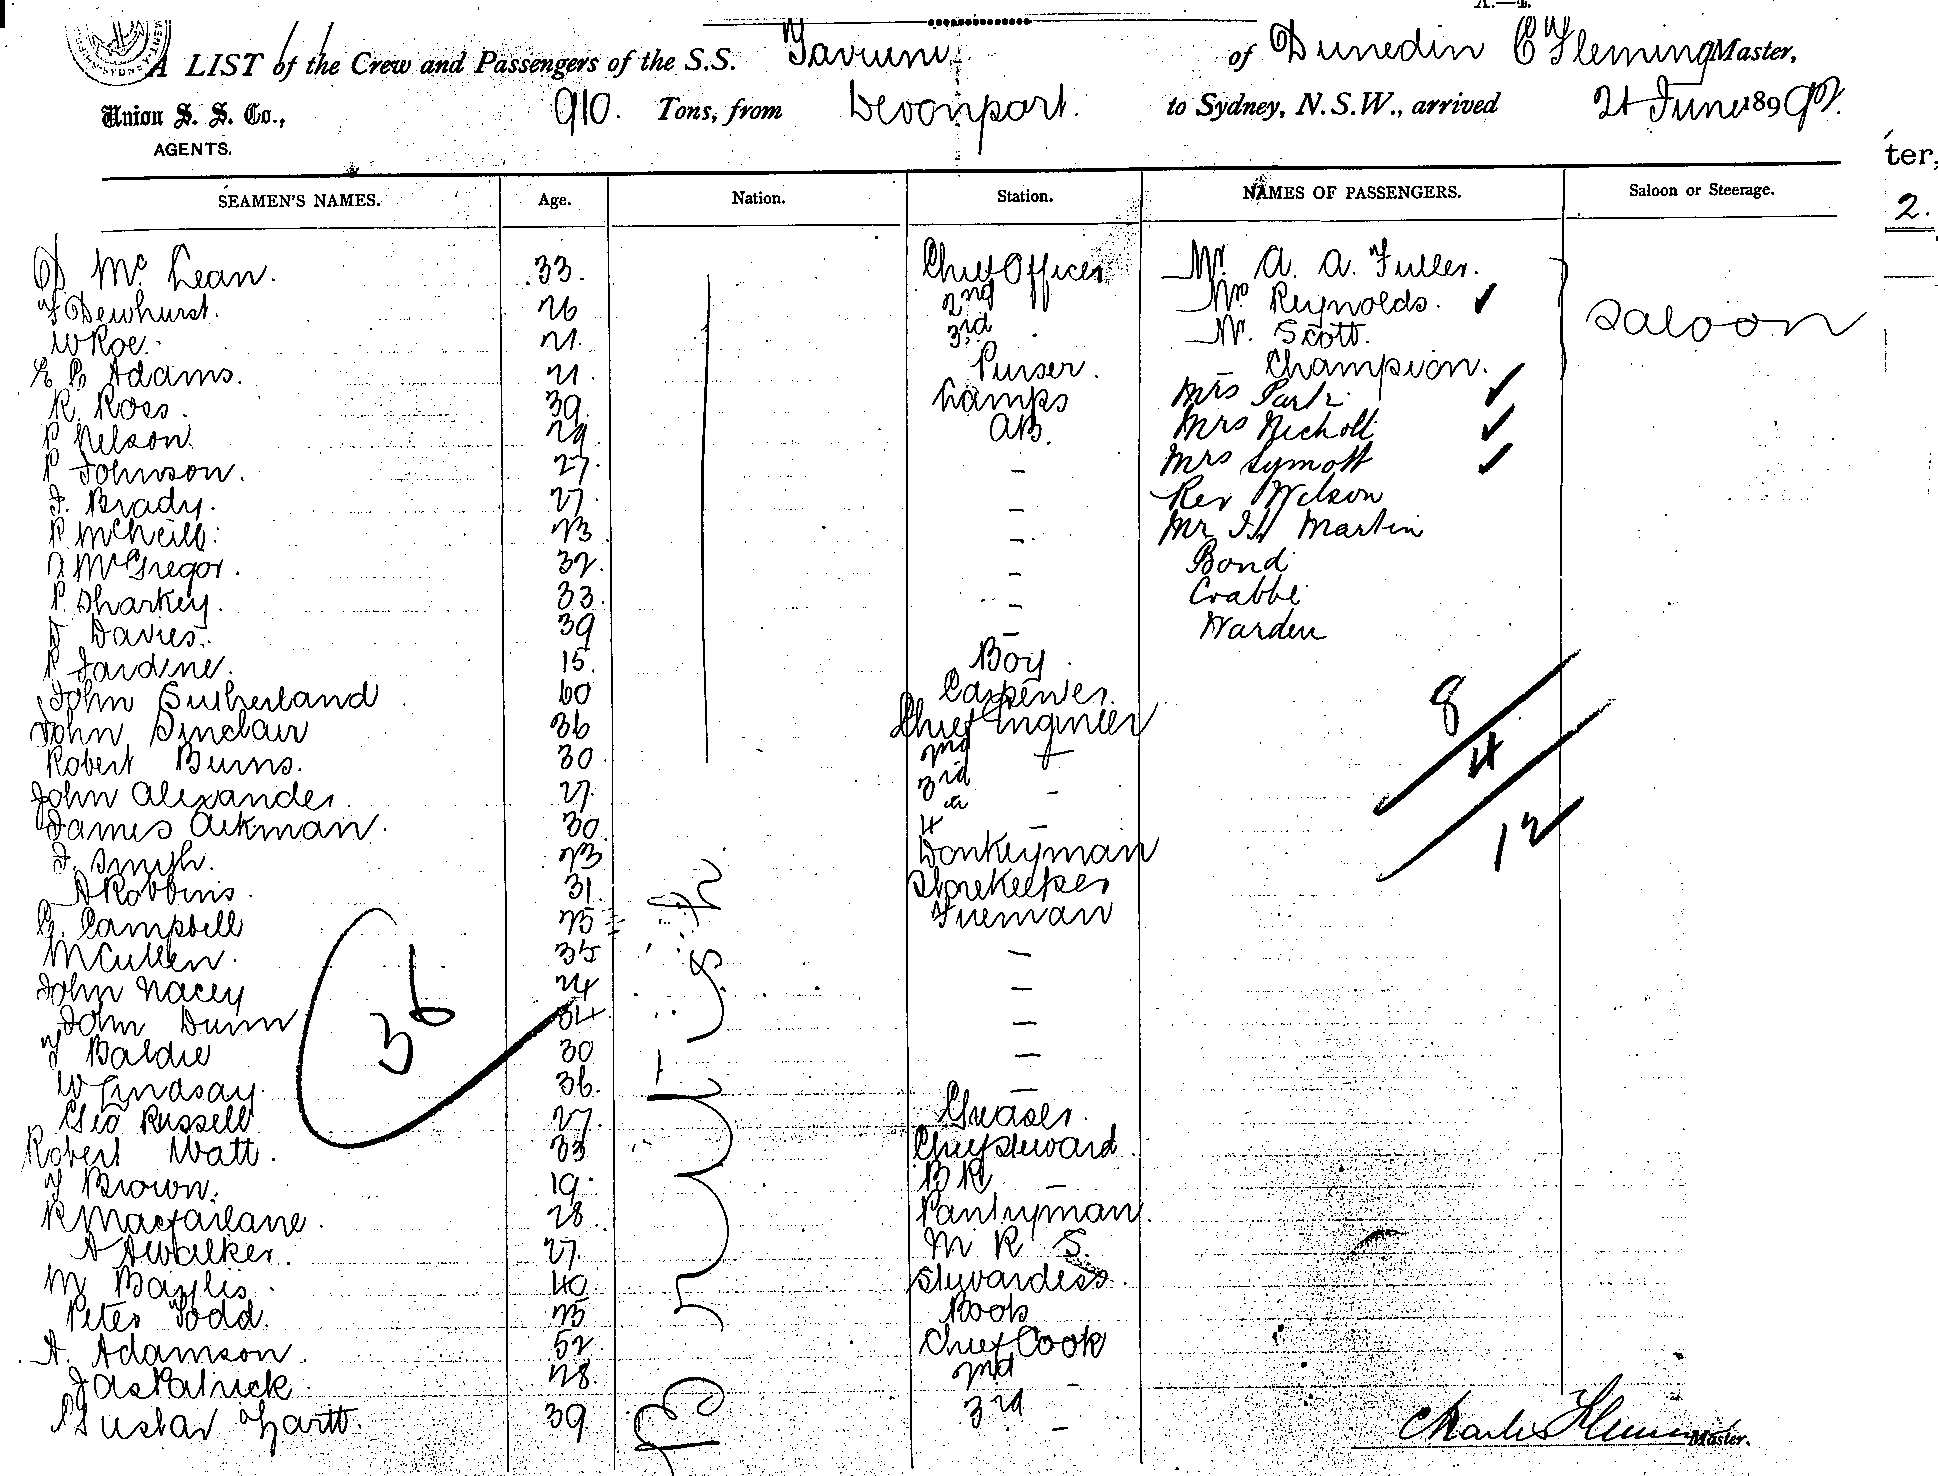 A.—4.
A LIST of the Crew and Passengers of the S.S. Taviuni of Dunedin C Fleming Master,
Union S. S. Co., 910. Tons, from Devonport. to Sydney, N.S.W., arrived 21 June 189
AGENTS.
ter,
2.
SEAMEN'S NAMES. Age. Nation. Station. NAMES OF PASSENGERS. Saloon or Steerage.
D McLean. 33. Chief Officer Mr. A. A. Fuller.
F Dewhurst. 26 2nd Mrs Reynolds. ✓ Saloon
W Roe. 21. 3rd Mr. Scott.
E B Adams. 21. Purser. Champion.
R. Ross. 39. Lamps Mrs Park ✓
P Nelson. 29. AB. Mrs Nicholl ✓
P Johnson. 27. – Mrs Symott ✓
J. Brady. 27. – Rev Wilson
P McNeill. 23 – Mr J H Martin
D McGregor. 32. – Bond
P. Sharkey. 33. – Crabbe
J Davies. 39 – Warden
P Jardine. 15. Boy
John Sutherland 60 Carpenter. 8
John Sinclair 36 Chief Engineer
Robert Burns. 30 2nd – 4
John Alexander. 27. 3rd –
James Aikman. 30 4 – 12
J. Smyth. 23 Donkeyman
A Robbins. 31. Storekeeper
G. Campbell 25 Fireman
M Cullen. 35 –
John Nacey 24 –
36
John Dunn 34 –
J Baldie 30 –
W Lindsay. 36. –
Geo Russell 27. Greaser.
Robert Watt. 33 Chief Steward
J Brown. 19. B R –
R Macfarlane. 28 Pantryman.
A A Walker. 27. M R S.
M Bayles. 40 Stewardess.
Peter Todd. 25
A. Adamson. 52 Chief Cook
Jas Patrick. 28. 2nd –
Gustav Hartt. 39 3rd –
British
Charles Fleming Master.